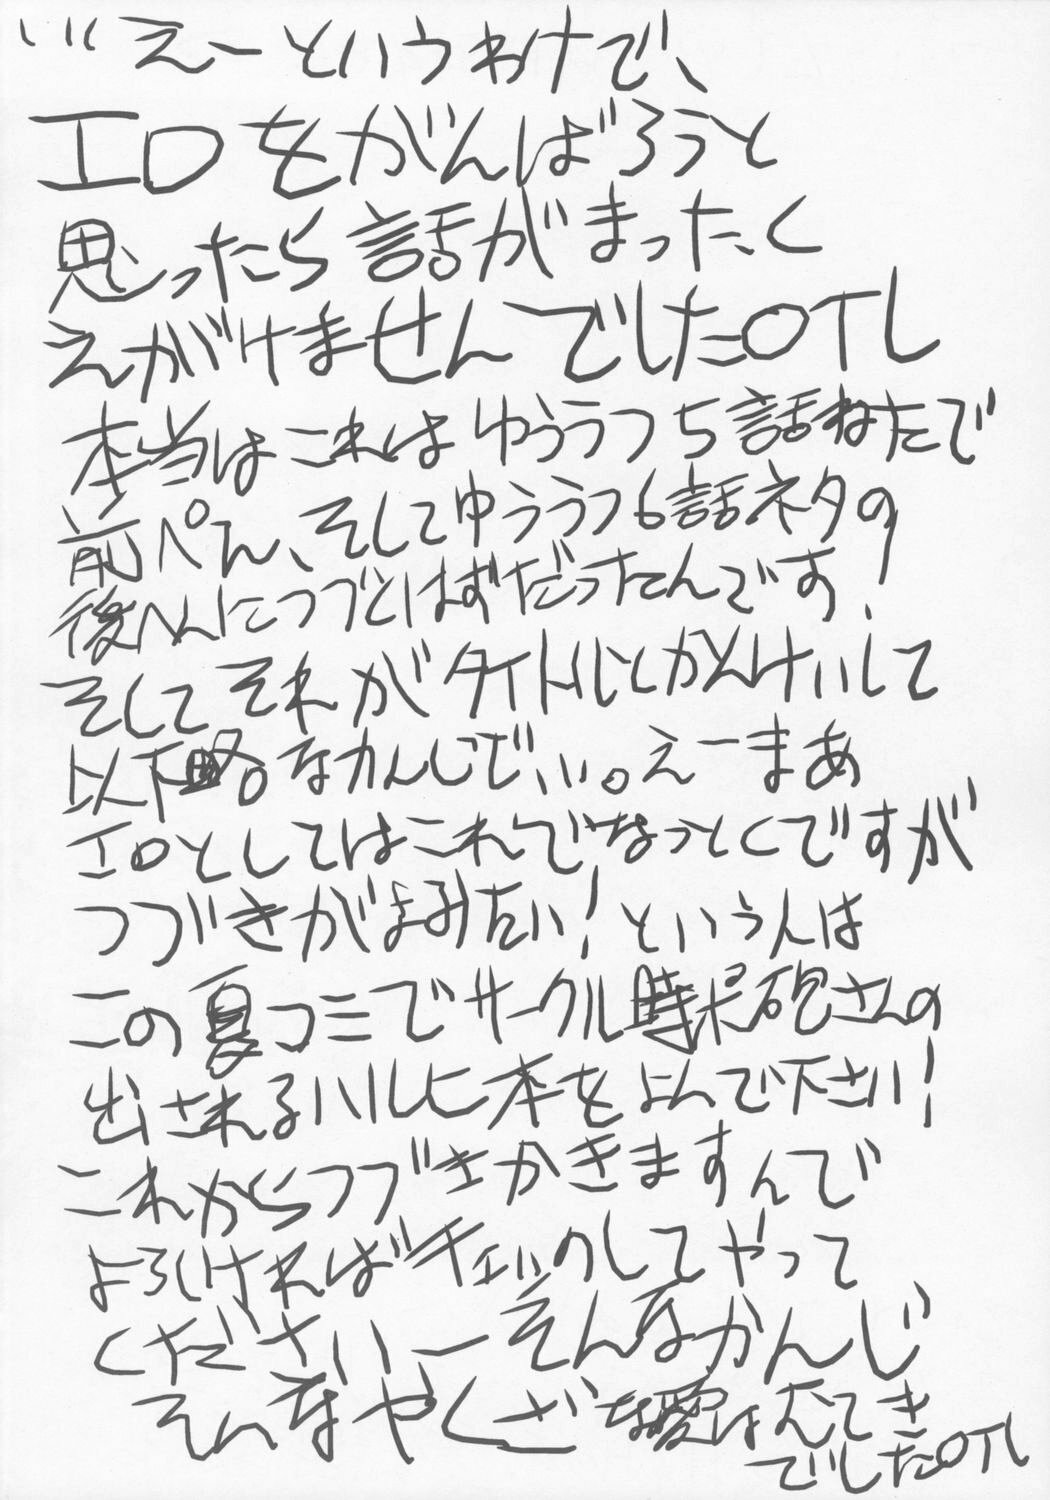 えーというわけで、
エロをがんばろうと
思ったら話がまったく
えがけませんでしたOTL
本当はこれはゆううつ5話ねたで
前ぺん、そしてゆううつ6話ネタの
後へんにつづくはずだったんです!
そしてそれがタイトルとかんけいして
以下略。なかんじで、い。えーまあ
エロとしてはこれでなっとくですが
つづきがよみたい!という人は
この夏コミでサークル時限砲さんの
出されるハルヒ本をよんで下さい!
これからつづきかきますんで
よろしければチェックしてやって
くださいーそんなかんじ
そんなやくざな愛はむてき
でしたOTL